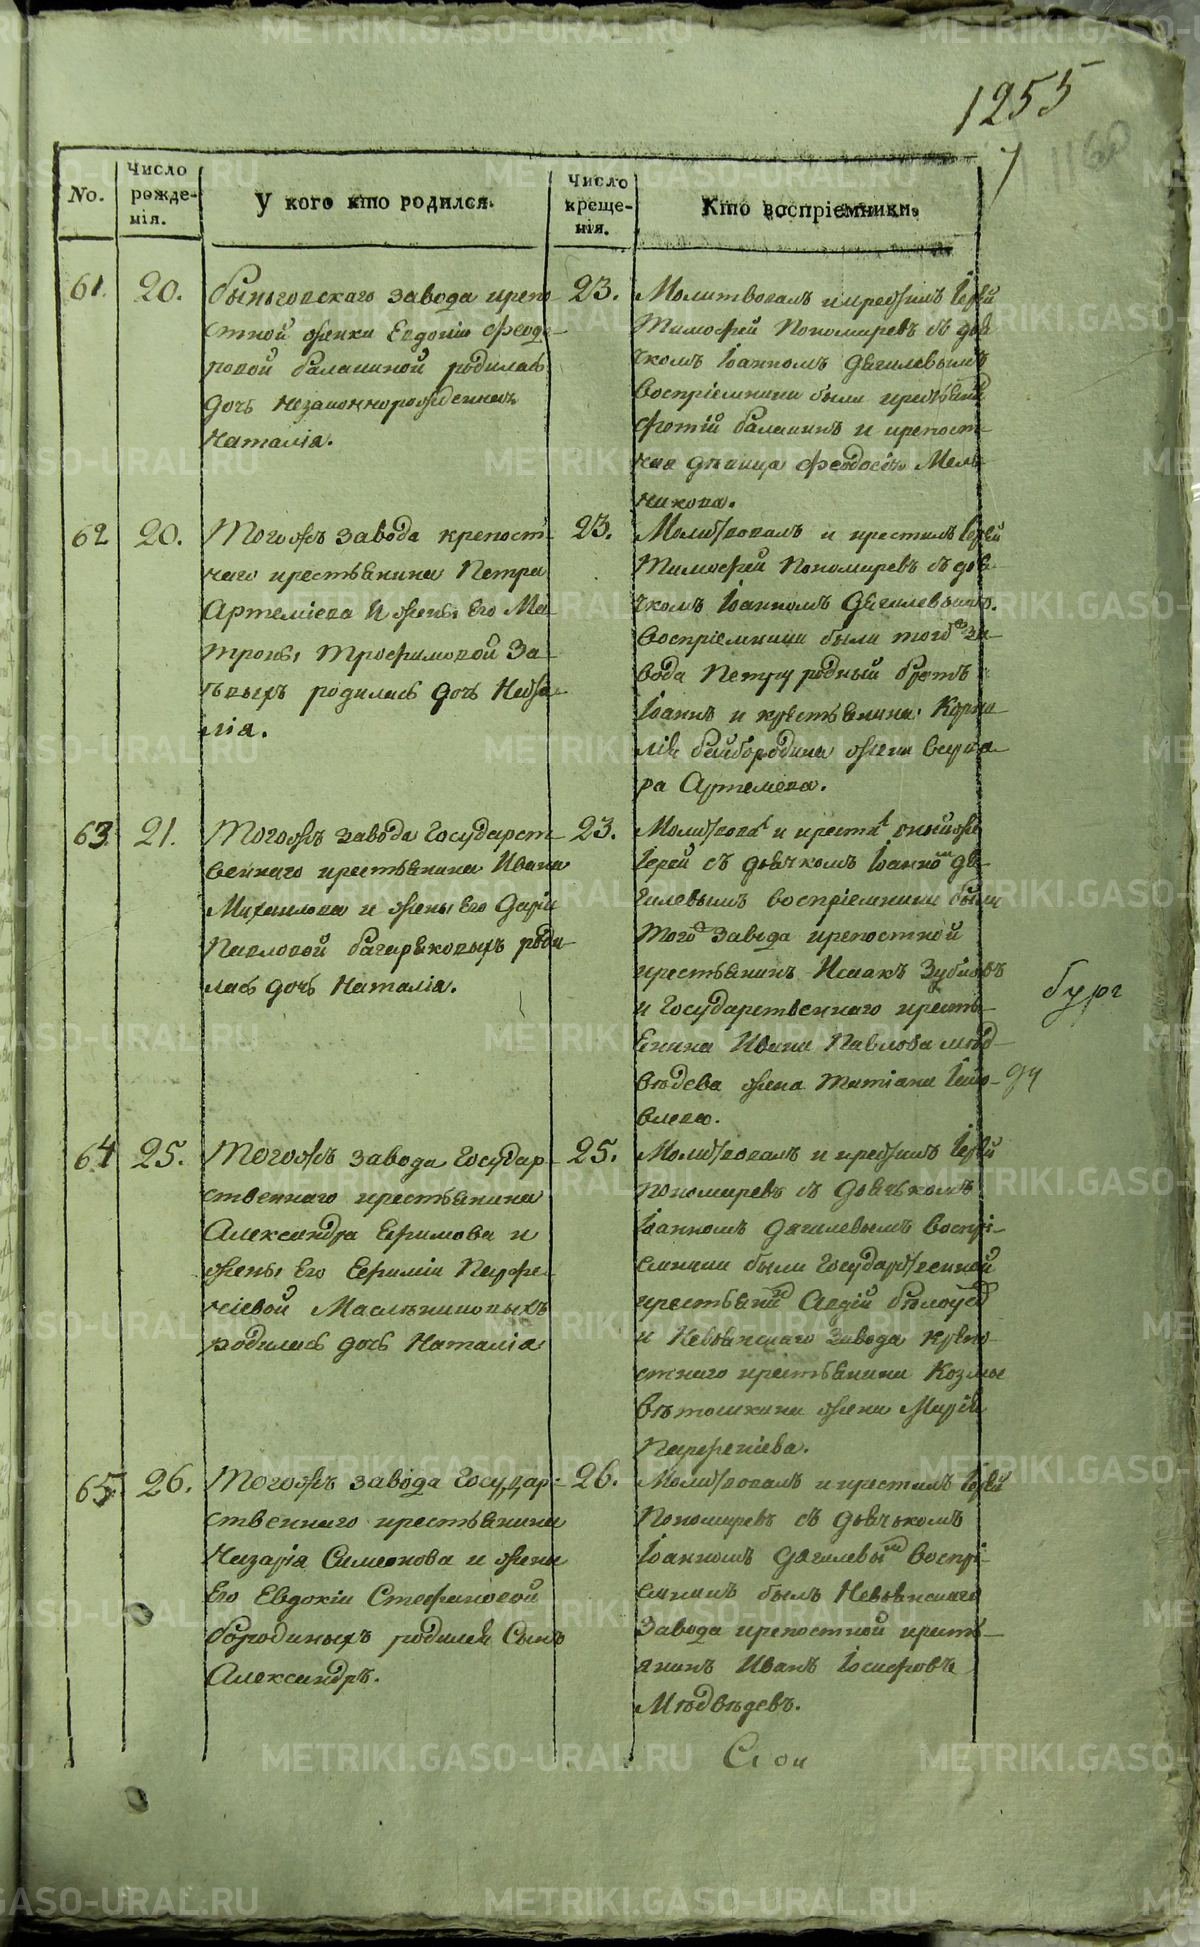 1255
1160
No.
Число рожде-нія.
У кого кто родился.
Число креще-нія.
Кто воспріемники.
61. 20.
Быньговскаго завода крепо
стной жонки Евдокіи Феодо-
ровой Балакиной родилась
дочь незаконнорожденная
Наталія.
23.
Молитвовалъ и крестилъ Іерей
Тимофей Пономаревъ съ дья
чкомъ Іоанномъ Дягилевымъ
воспріемники были крестьянинъ
Фотій Балакинъ и крепост-
ная девица Феодосія Мель-
никова.
62 20.
Тогожъ завода крепост-
наго крестьянина Петра
Артеміева и жены Его Ма-
троны Трофимовой За-
родилась дочь Ната-
лія.
23.
Молитвовалъ и крестилъ Іерей
Тимофей Пономаревъ съ дья-
чкомъ Іоанномъ Дягилевымъ.
воспріемники были тогожъ за-
вода Петру родный братъ
Іоаннъ и крестьянина Корни-
лія Байбородина жена
ра Артемева.
63. 21.
Тогожъ завода Государст-
веннаго крестьянина Ивана
Михаилова и жены Его Даріи
Павловой Багаряковыхъ роди-
лась дочь Наталія.
23.
Молитвовалъ и крестилъ онныйже
Іерей съ дьячкомъ Іоанномъ Дя-
гилевымъ воспріемники были
тогожъ завода крепостной
крестьянинъ Исаакъ Зубковъ
и Государственнаго кресть-
янина Ивана Павлова мѣд-
вѣдева жена Татіана Іако-
влева.
64 25.
Тогожъ завода Государ-
ственнаго крестьянина
Александра Ефимова и
жены Его Ефиміи Парфе-
ніевой Маслениковыхъ
родилась дочь Наталія
25.
Молитвовалъ и крестилъ Іерей
Пономаревъ съ дьячькомъ
Іоанномъ Дягилевымъ воспрі-
емники были Государственной
крестьянинъ Авдій
и Невьянскаго завода крѣпо-
стнаго крестьянина Козмы
Вѣтошкина жена Марія
Парфеніева.
65. 26.
Тогожъ завода Государ-
ственнаго крестьянина
Назарія Симеонова и жены
Его Евдокіи Стефановой
Бородиныхъ родился Сынъ
Александръ.
26.
Молитвовалъ и крестилъ Іерей
Пономаревъ съ дьячькомъ
Іоанномъ Дягилевымъ воспрі-
емникъ былъ Невьянскаго
завода крепостной кресть-
янинъ Иванъ Іосифовъ
Мѣдвѣдевъ.
бург
METRIKI.GASO-URAL.RU